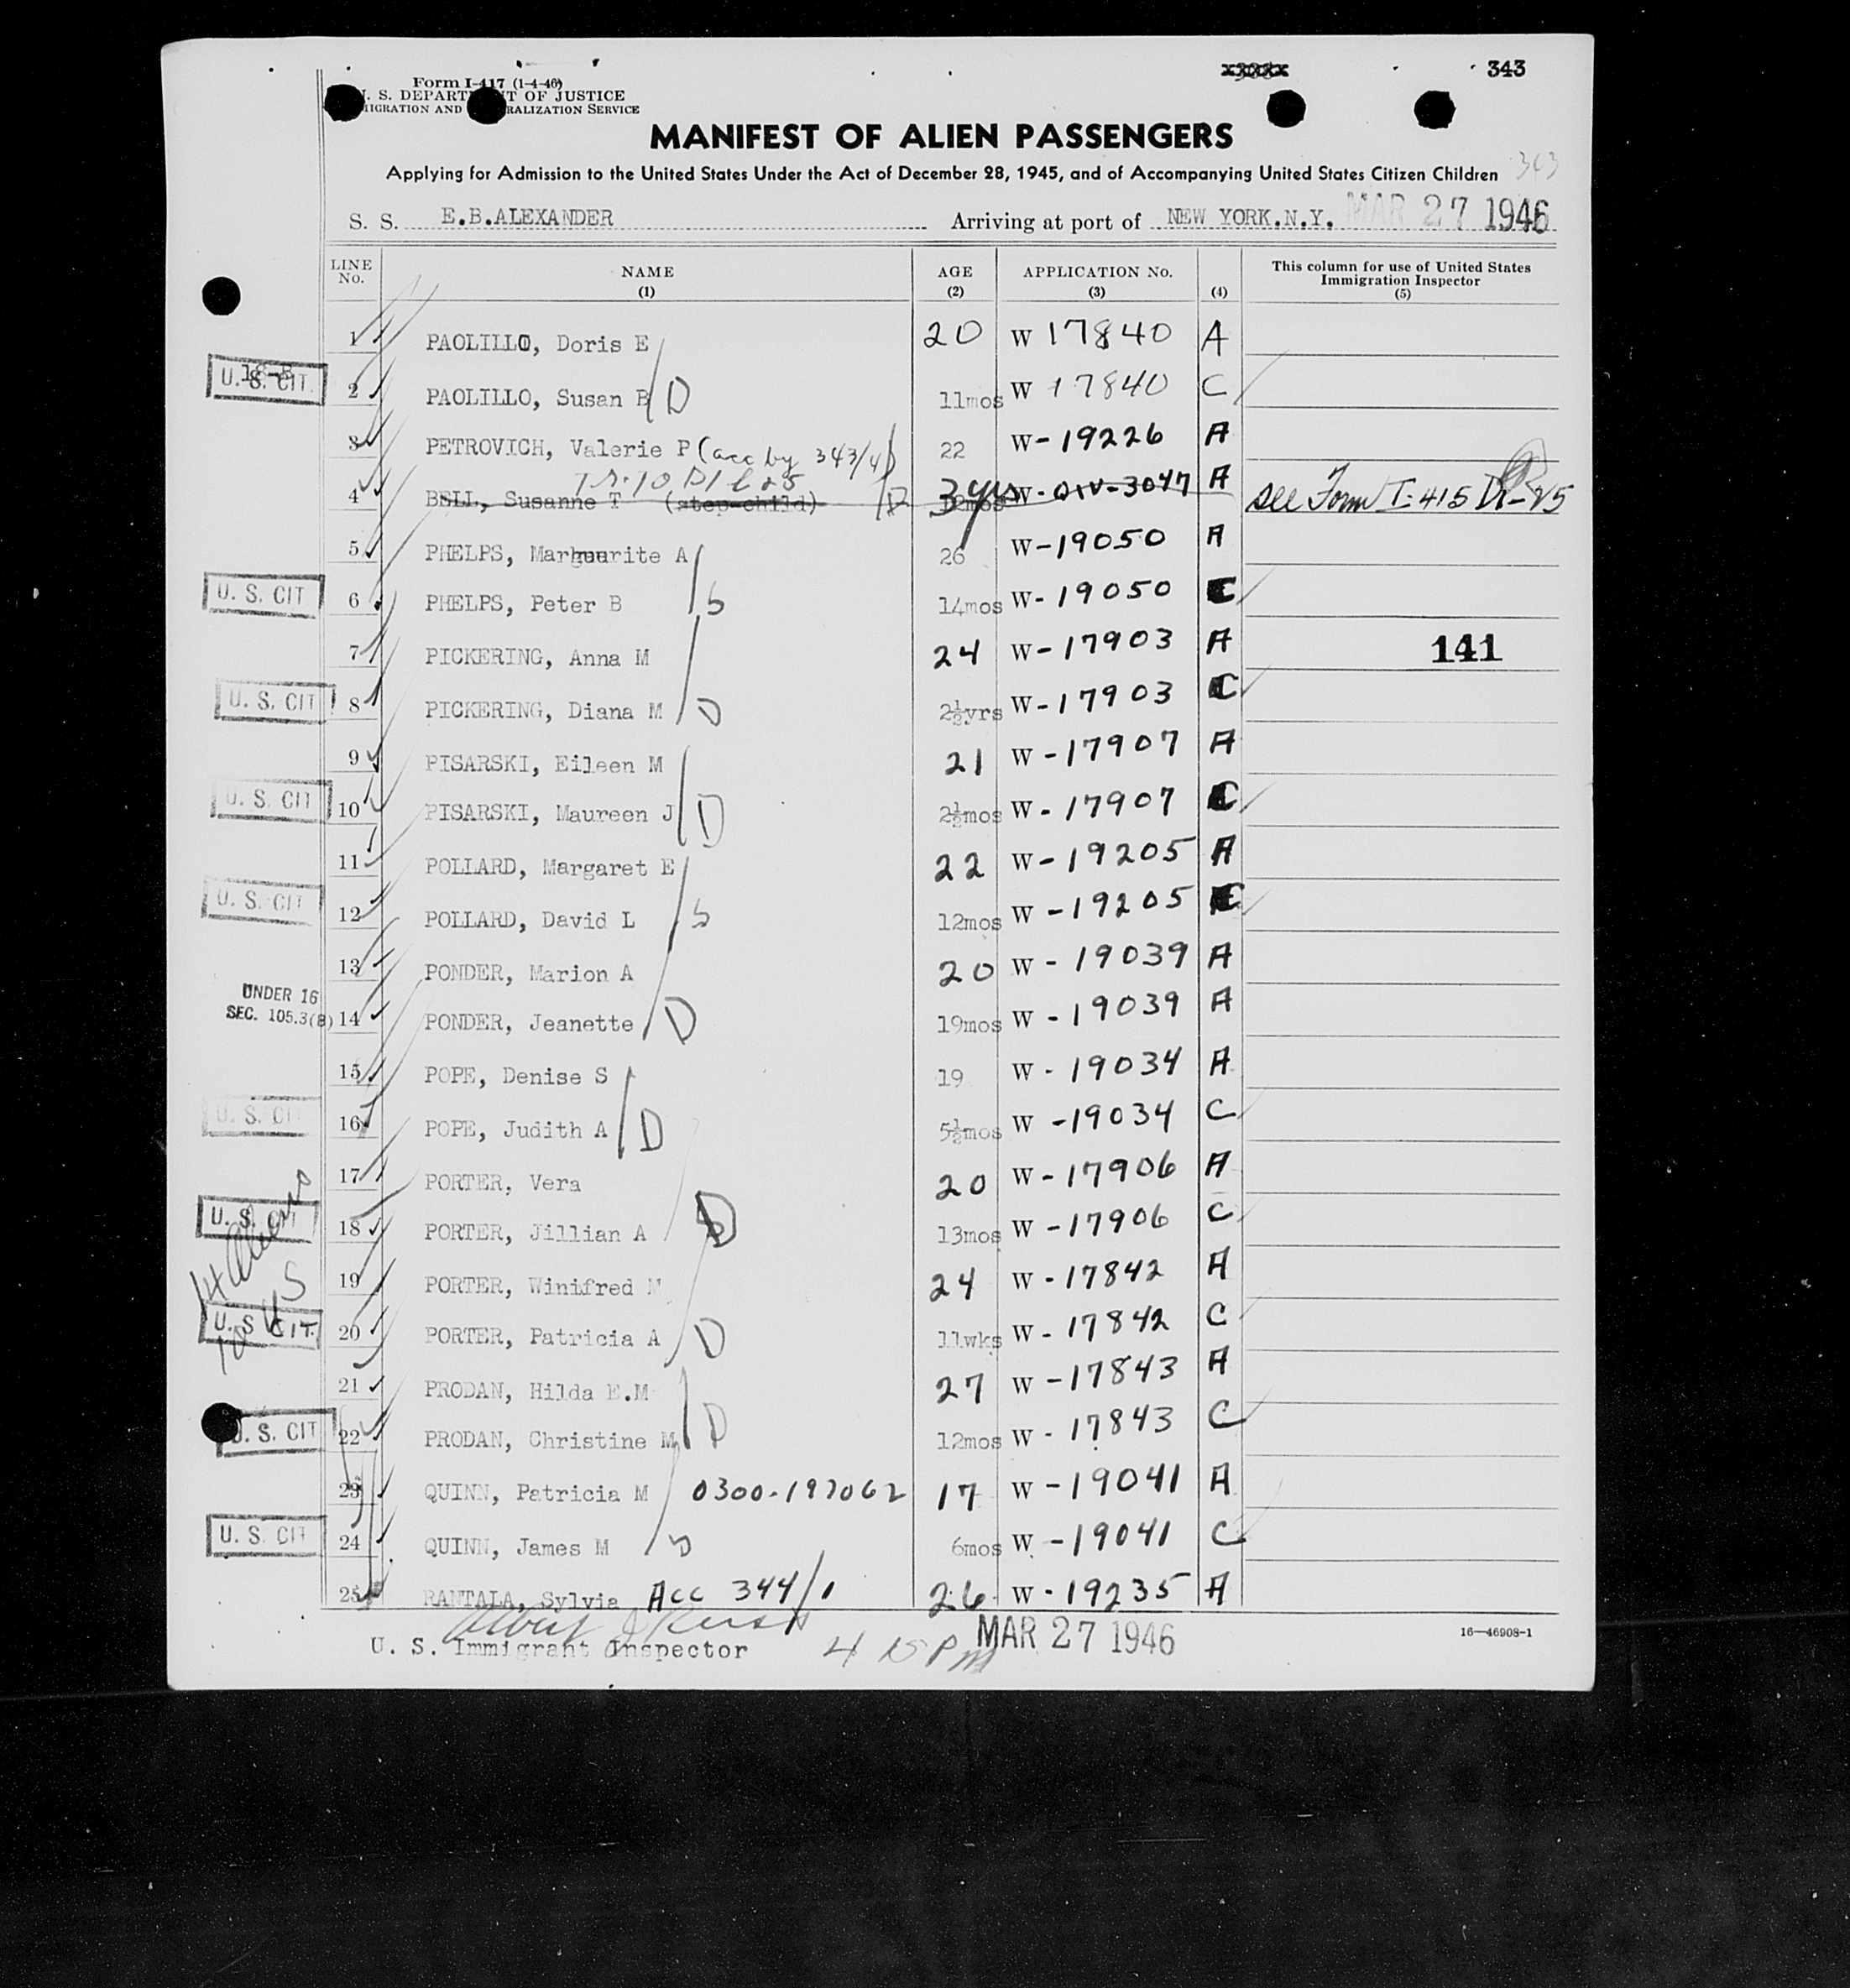 Form I-417 (1-4-46)
343
U. S. DEPARTMENT OF JUSTICE
IMMIGRATION AND NATURALIZATION SERVICE
MANIFEST OF ALIEN PASSENGERS
Applying for Admission to the United States Under the Act of December 28, 1945, and of Accompanying United States Citizen Children 343
S. S. E.B.ALEXANDER Arriving at port of NEW YORK.N.Y. MAR 27 1946
LINE No. NAME (1) AGE (2) APPLICATION No. (3) (4) This column for use of United States Immigration Inspector (5)
1 PAOLILLO, Doris E 20 W 17840 A
U. S. CIT. 2 PAOLILLO, Susan B D 11mos W 17840 C
3 PETROVICH, Valerie P (acc by 343/4) 22 W-19226 A
4 BELL, Susanne T (step-child) D 3 yrs W-QIV-3047 A see Form I-415 85
5 PHELPS, Marguerite A 26 W-19050 A
U. S. CIT 6 PHELPS, Peter B S 14mos W-19050 C
7 PICKERING, Anna M 24 W-17903 A 141
U. S. CIT 8 PICKERING, Diana M D 2½yrs W-17903 C
9 PISARSKI, Eileen M 21 W-17907 A
U. S. CIT 10 PISARSKI, Maureen J D 2½mos W-17907 C
11 POLLARD, Margaret E 22 W-19205 A
U. S. CIT 12 POLLARD, David L S 12mos W-19205 C
13 PONDER, Marion A 20 W-19039 A
UNDER 16
SEC. 105.3(B) 14 PONDER, Jeanette D 19mos W-19039 A
15 POPE, Denise S 19 W-19034 A
U. S. CIT 16 POPE, Judith A D 5½mos W-19034 C
17 PORTER, Vera 20 W-17906 A
U. S. CIT 18 PORTER, Jillian A D 13mos W-17906 C
14 Aliens
10 US
19 PORTER, Winifred M 24 W-17842 A
U. S CIT. 20 PORTER, Patricia A D 11wks W-17842 C
21 PRODAN, Hilda E.M 27 W-17843 A
U. S. CIT 22 PRODAN, Christine M D 12mos W-17843 C
23 QUINN, Patricia M 0300-197062 17 W-19041 A
U. S. CIT 24 QUINN, James M S 6mos W-19041 C
25 RANTALA, Sylvia Acc 344/1 26 W-19235 A
U. S. Immigrant Inspector 4 15 PM MAR 27 1946
16—46908-1